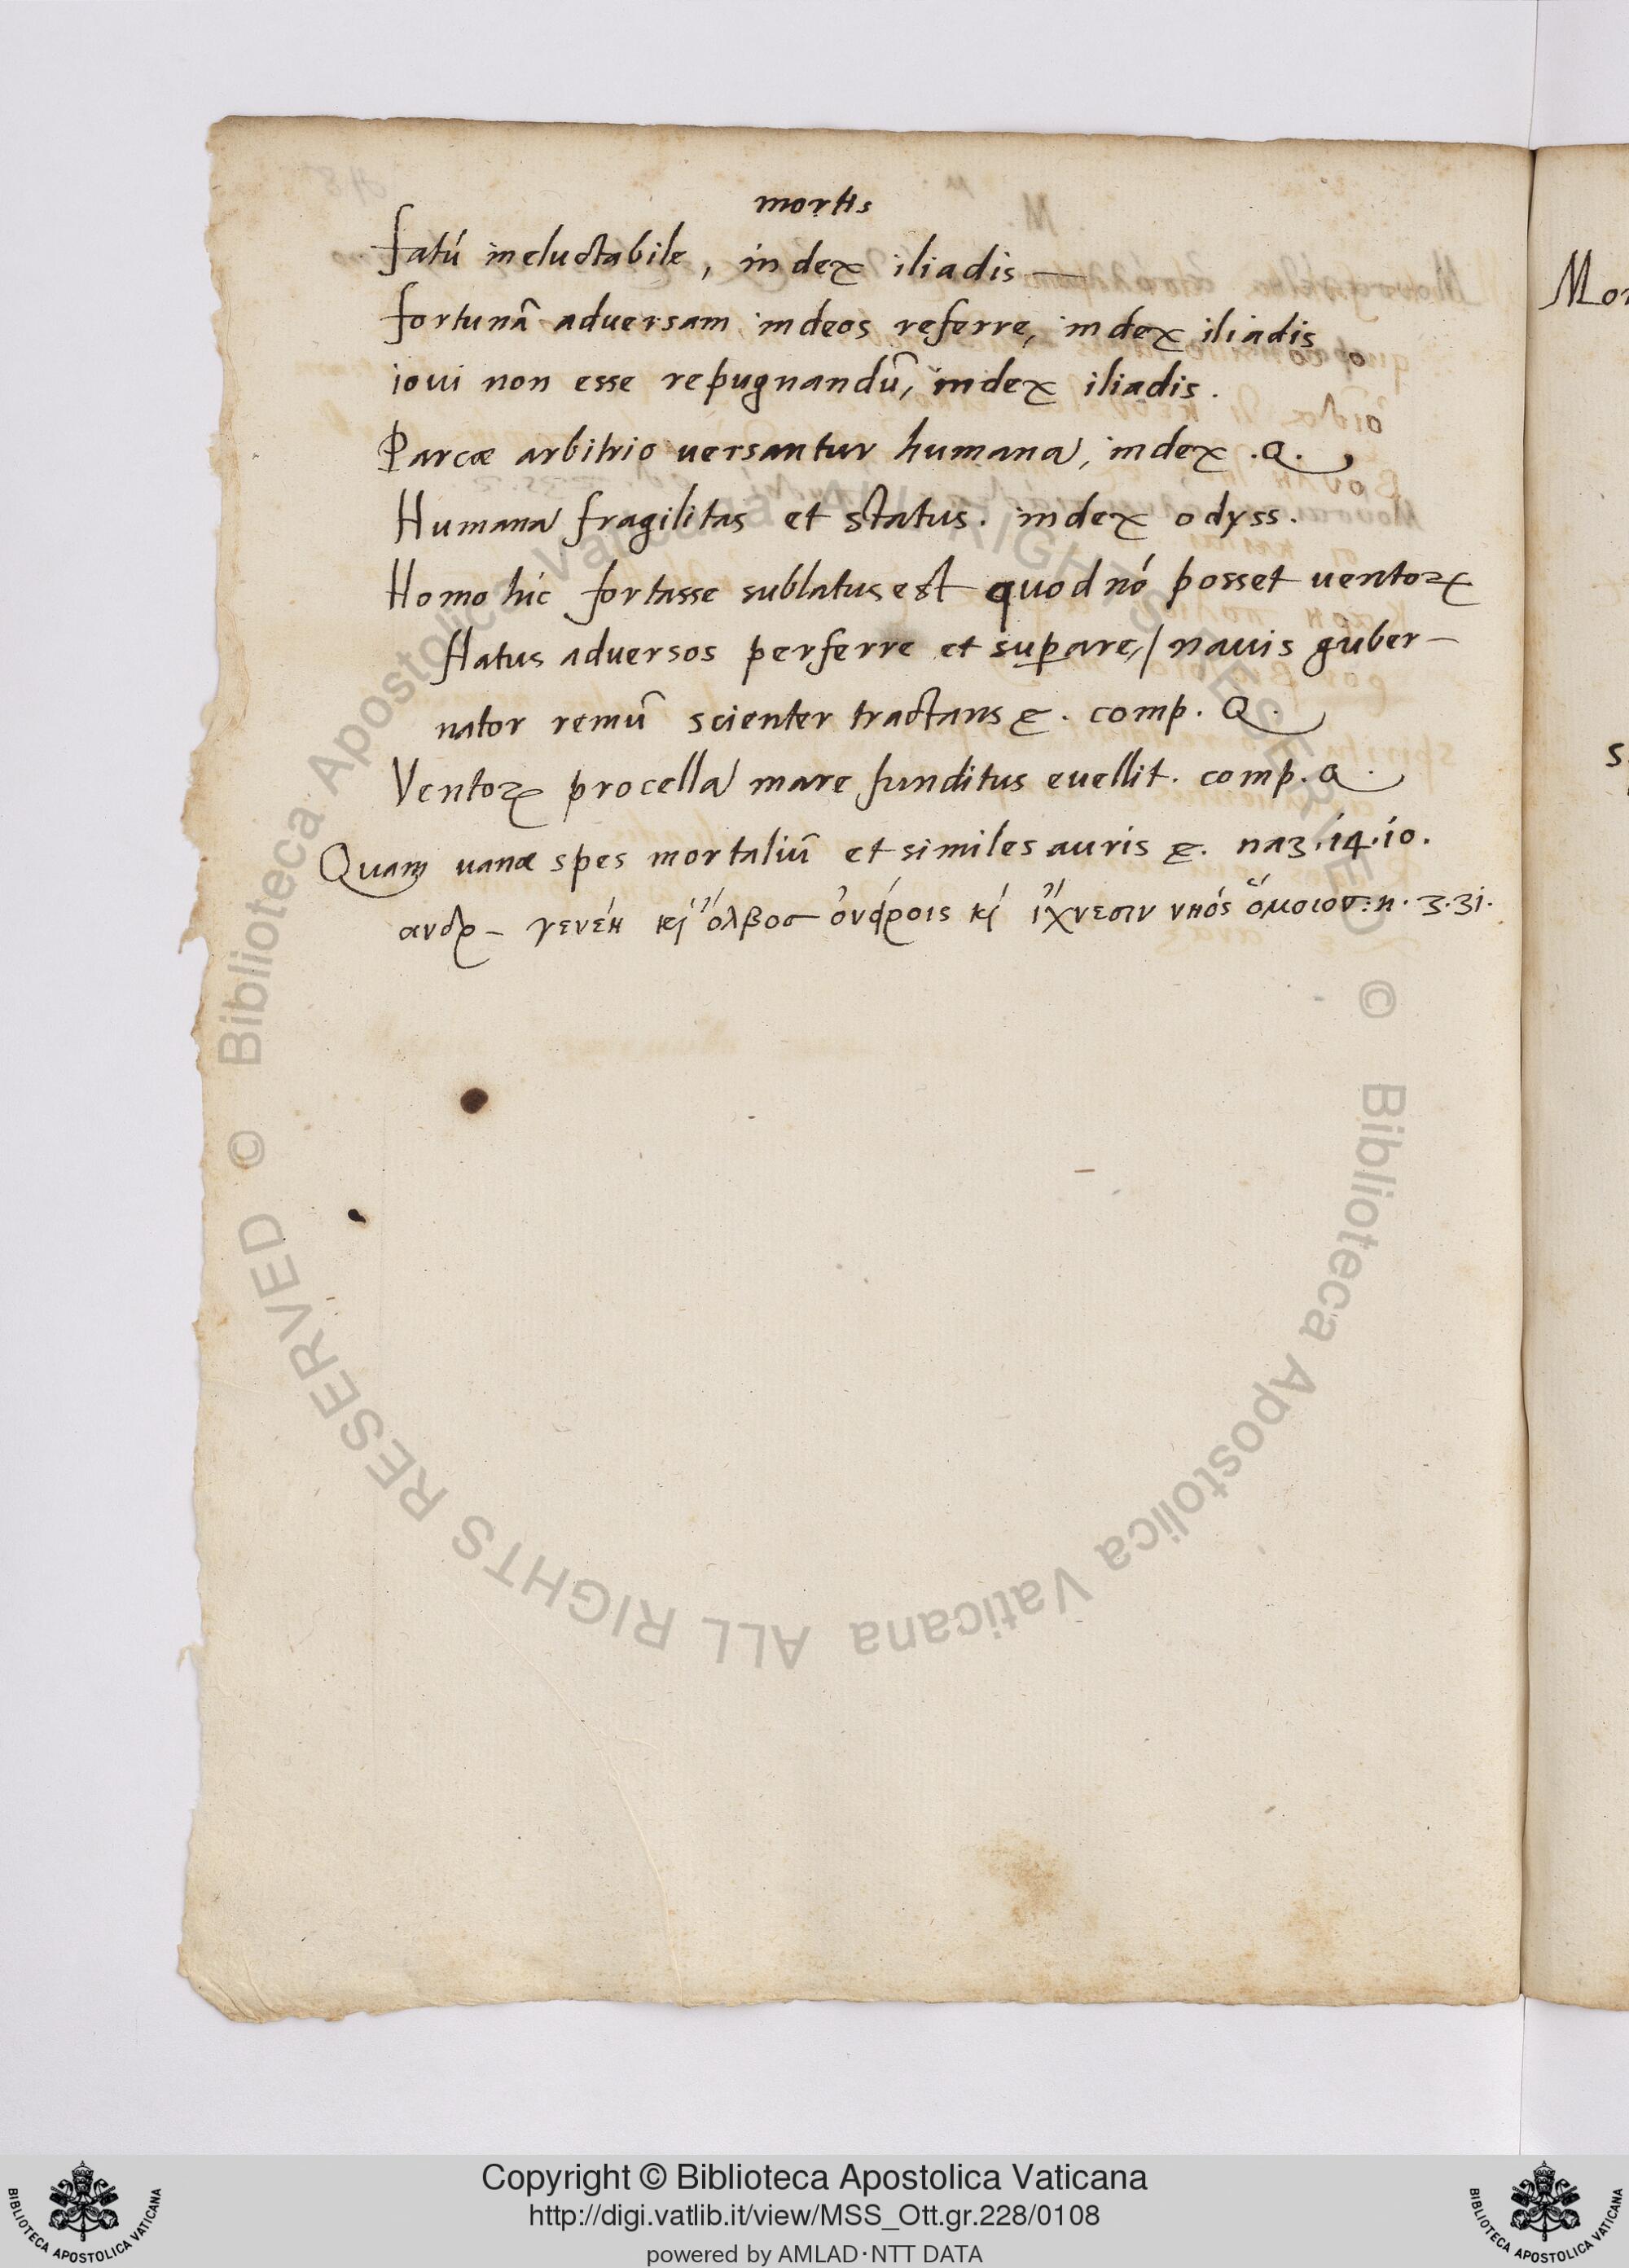 mortis
fatú ineluctabile, index iliadis —
fortunā adversam indeos referre, index iliadis
ioui non esse repugnandū, index iliadis.
Parcæ arbitrio uersantur humana, index .Q.
Humana fragilitas et status. index odyss.
Homo hic fortasse sublatus est quod nó posset uentoꝝ
flatus aduersos perferre et suꝑare,/ nauis guber-
nator remū scienter tractans &. comp. Q.
Ventoꝝ procella mare funditus euellit. comp. Q.
Quam uanæ spes mortaliū et similes auris &. naz. 14. 10.
ανδρ – γενεή κὶ ὄλβοσ ὀνείροις κὶ ἴχνεσιν νηός ὅμοιον: n. 3. 31.
Mor
Copyright © Biblioteca Apostolica Vaticana
http://digi.vatlib.it/view/MSS_Ott.gr.228/0108
powered by AMLAD·NTT DATA
BIBLIOTECA APOSTOLICA VATICANA
BIBLIOTECA APOSTOLICA VATICANA
© Biblioteca Apostolica Vaticana ALL RIGHTS RESERVED © Biblioteca Apostolica Vaticana ALL RIGHTS RESERVED